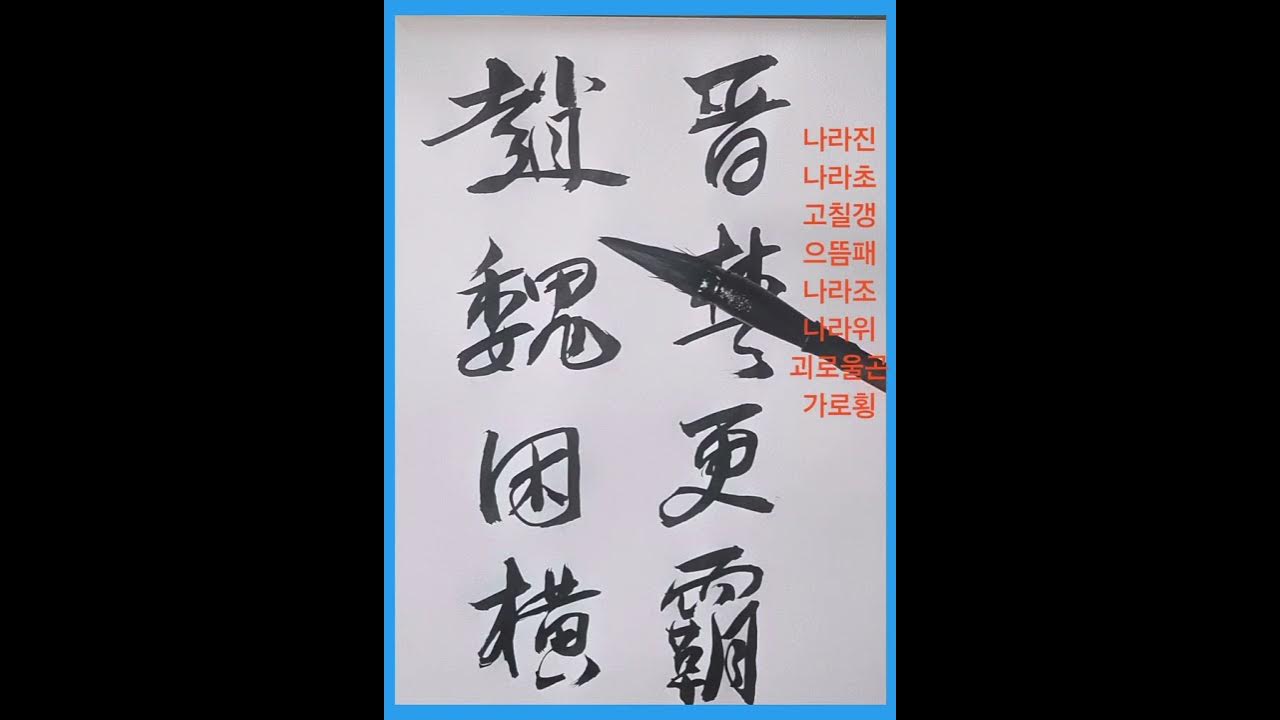 晋楚更霸
趙魏困橫
나라진
나라초
고칠갱
으뜸패
나라조
나라위
괴로울곤
가로횡